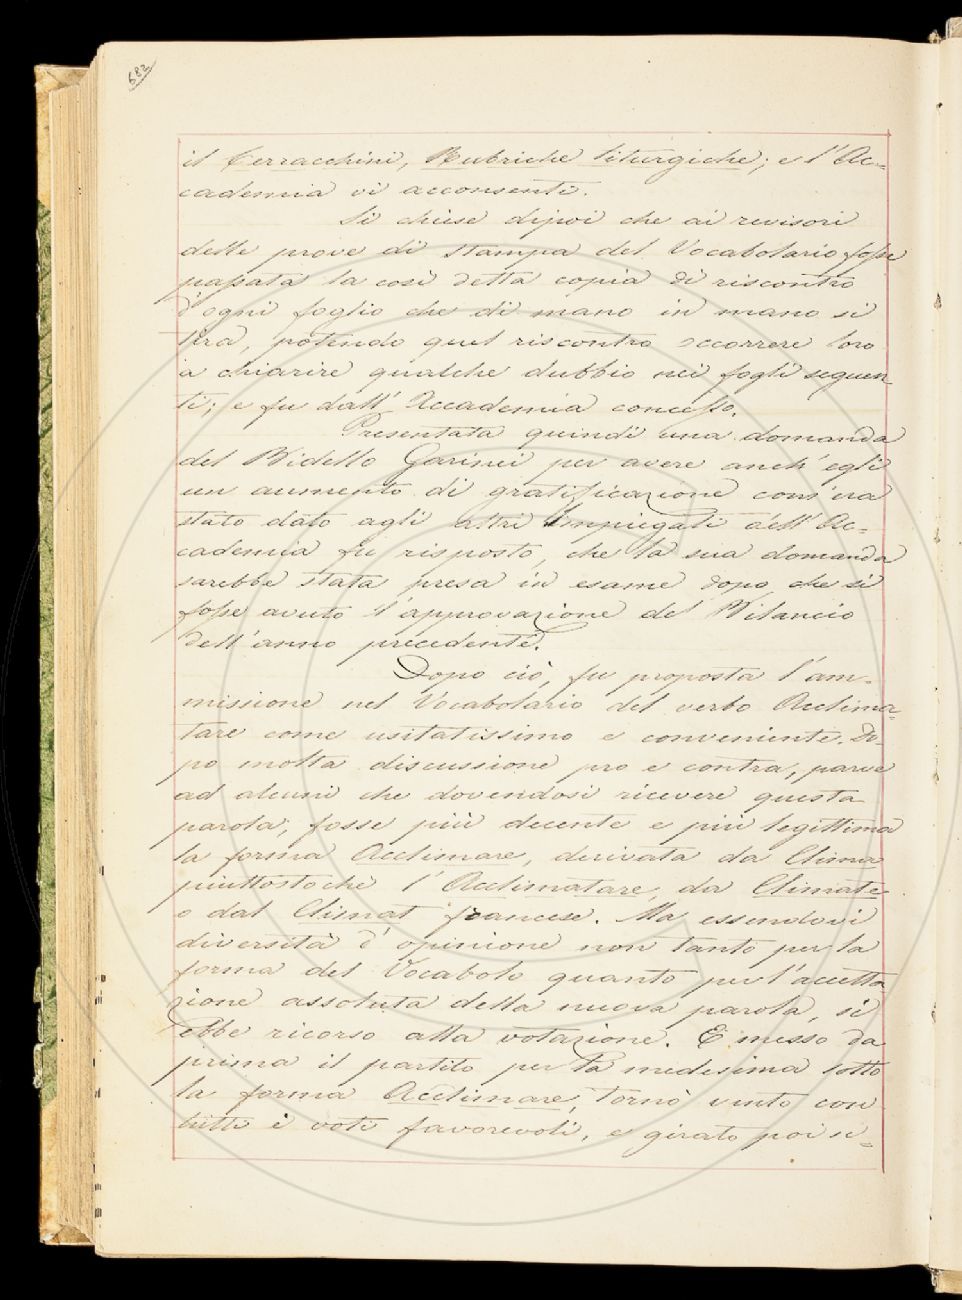 682
il Cerracchini, Rubriche liturgiche; e l'Ac=
cademia vi acconsentì.
Si chiese dipoi che ai revisori
delle prove di stampa del Vocabolario fosse
passata la così detta copia di riscontro
d'ogni foglio che di mano in mano si
tira, potendo quel riscontro occorrere loro
a chiarire qualche dubbio nei fogli seguen
ti; e fu dall'Accademia concesso.
Presentata quindi una domanda
del Bidello Garinei per avere anch'egli
un aumento di gratificazione com'era
stato dato agli altri Impiegati dell'Ac=
cademia fu risposto, che la sua domanda
sarebbe stata presa in esame dopo che si
fosse avuto l'approvazione del Bilancio
dell'anno precedente.
Dopo ciò, fu proposta l'am=
missione nel Vocabolario del verbo Acclima=
tare come usitatissimo e conveniente. Do=
po molta discussione pro e contra, parve
ad alcuni che dovendosi ricevere questa
parola, fosse più decente e più legittima
la forma Acclimare, derivata da Clima
piuttostochè l'Acclimatare, da Climate
o dal Climat francese. Ma essendovi
diversità d'opinione non tanto per la
forma del Vocabolo quanto per l'accetta
zione assoluta della nuova parola, si
ebbe ricorso alla votazione. E messo da
prima il partito per la medesima sotto
la forma Acclimare, tornò vinto con
tutti i voti favorevoli, e girato poi si=